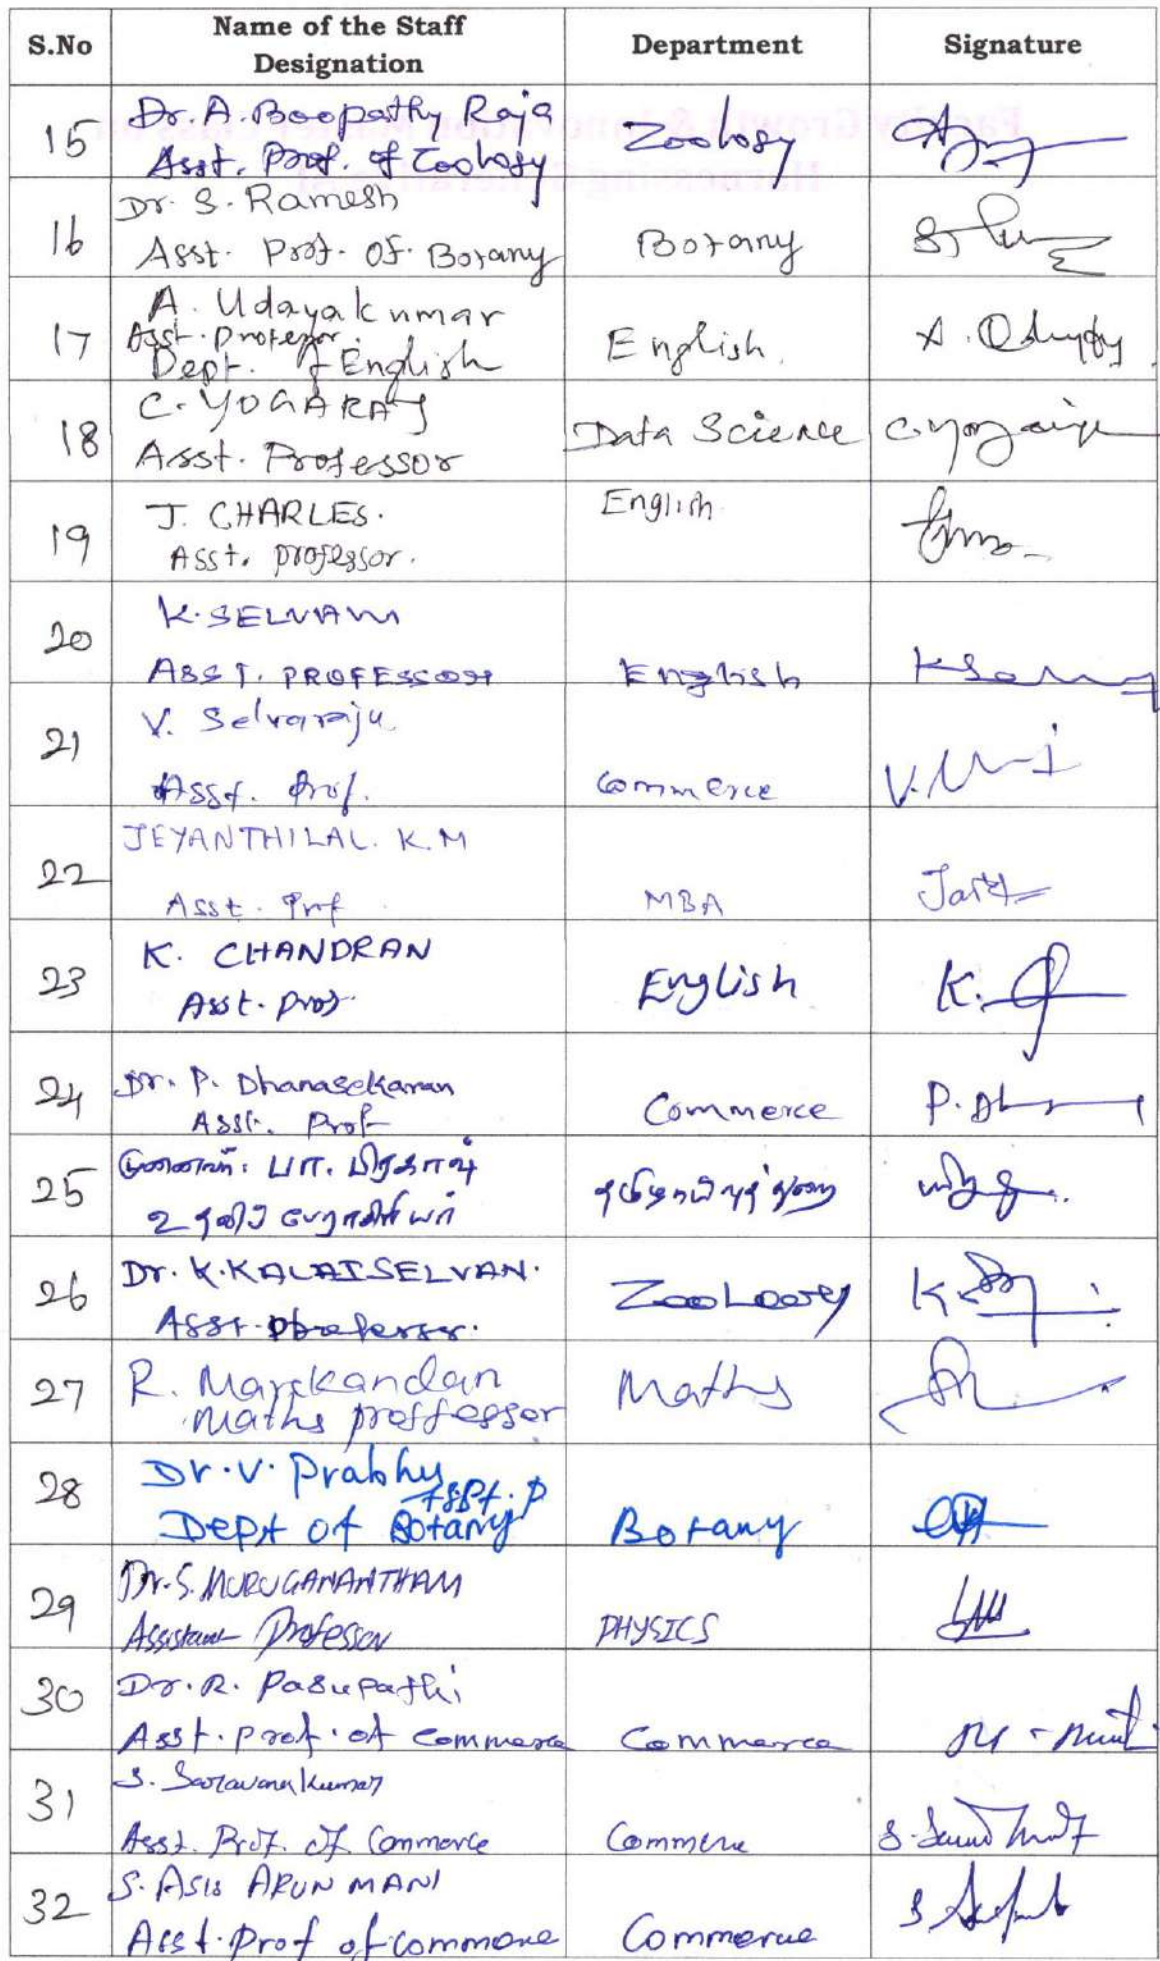 S.No Name of the Staff Designation Department Signature
15 Dr. A. Boopathy Raja
Asst. Prof. of Zoology Zoology
16 Dr. S. Ramesh
Asst. Prof. Of. Botany Botany
17 A. Udayakumar
Asst. Professor.
Dept. of English English. A.
18 C. YOGARAJ
Asst. Professor Data Science
19 J. CHARLES. English
Asst. professor.
20 K. SELVAM
ASST. PROFESSOR English
21 V. Selvaraju
Asst. Prof. Commerce V.
22 JEYANTHILAL. K.M
Asst. Prof MBA
23 K. CHANDRAN
Asst. Prof. English K.
24 Dr. P. Dhanasekaran
Asst. Prof Commerce P.
25 முனைவர். பா. பிரகாஷ்
உதவிப் பேராசிரியர் தமிழாய்வுத்துறை
26 Dr. K. KALAISELVAN.
Asst. Professor. Zoology K.
27 R. Markandan
Maths proffessor Maths
28 Dr. V. Prabhu
Asst. P
Dept of Botany Botany
29 Dr. S. MURUGANANTHAM
Assistant Professor PHYSICS
30 Dr. R. Pasupathi
Asst. prof. of Commerce Commerce
31 S. Saravanakumar
Asst. Prof. of Commerce Commerce S.
32 S. ASIS ARUN MANI
Asst. Prof of commerce Commerce S